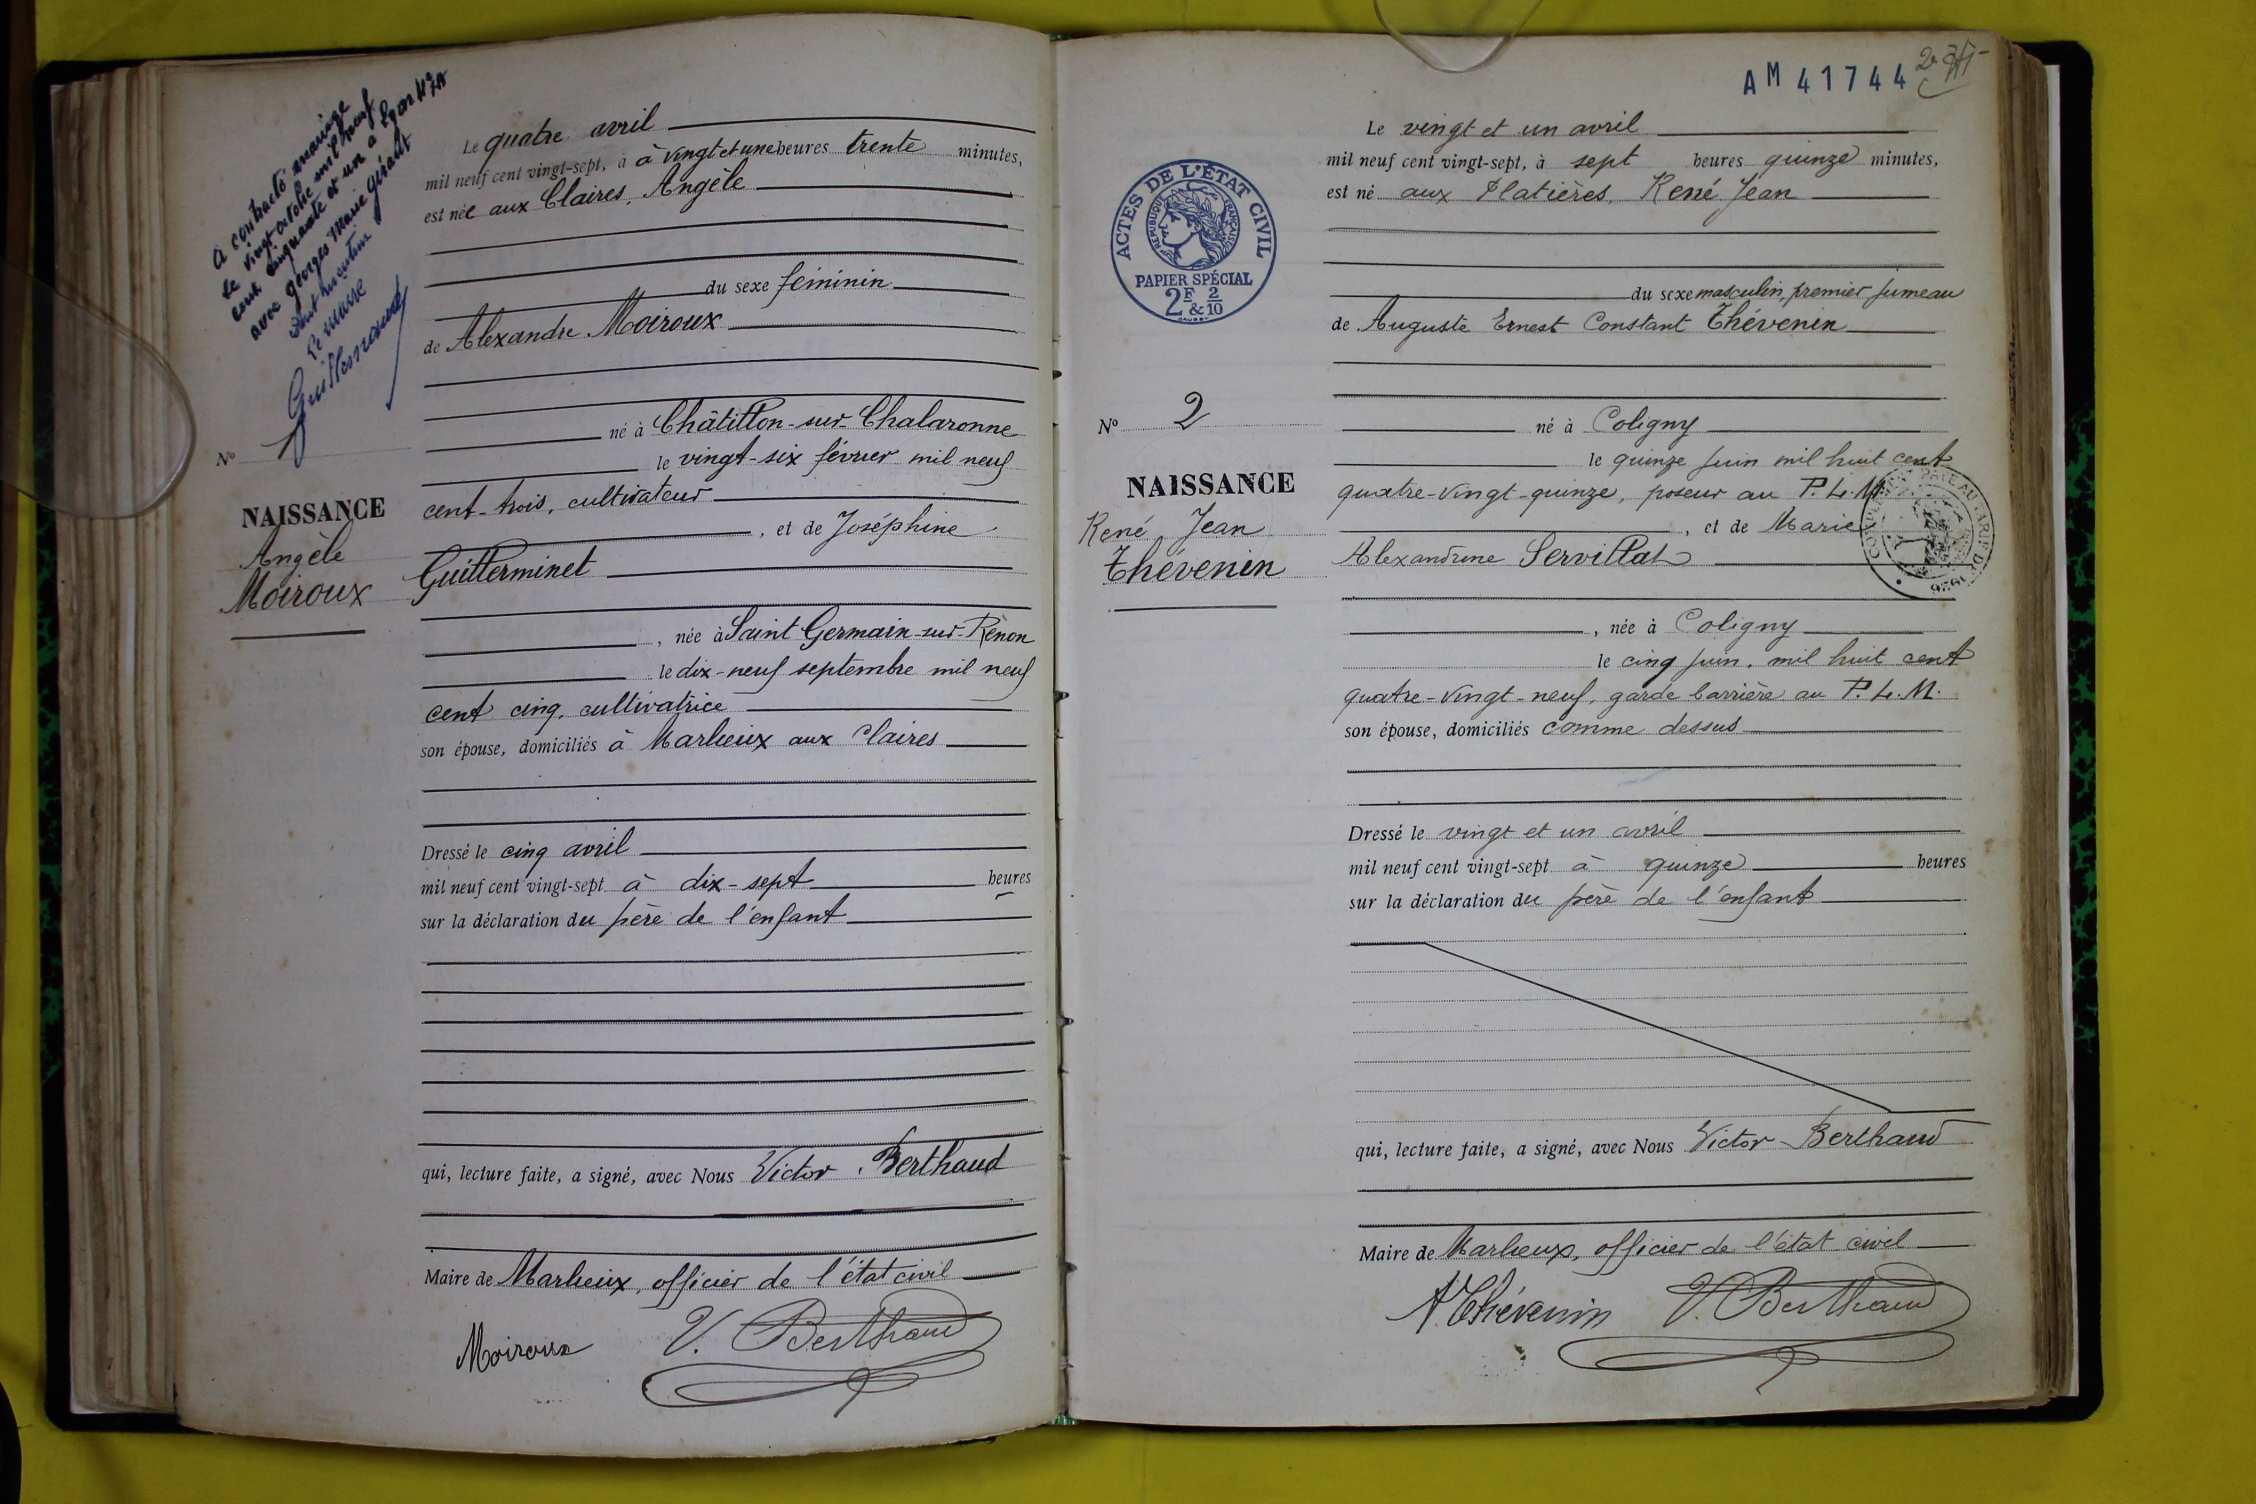 A contracté mariage
le vingt octobre mil neuf
cent cinquante et un à Lyon
avec Georges Marie
dont mention
Le maire
Guillermand
Nº 1
NAISSANCE
Angèle
Moiroux
Le quatre avril
mil neuf cent vingt-sept, à à vingt et une heures trente minutes,
est née aux Claires, Angèle
du sexe féminin
de Alexandre Moiroux
né à Châtillon-sur-Chalaronne
le vingt-six février mil neuf
cent-trois, cultivateur
, et de Joséphine
Guillerminet
, née à Saint Germain-sur-Renon
le dix-neuf septembre mil neuf
cent cinq, cultivatrice
son épouse, domiciliés à Marlieux aux Claires
Dressé le cinq avril
mil neuf cent vingt-sept à dix-sept heures
sur la déclaration du père de l'enfant
qui, lecture faite, a signé, avec Nous Victor Berthaud
Maire de Marlieux, officier de l'état civil
Moiroux V. Berthaud
AM 41744
ACTES DE L'ÉTAT CIVIL
RÉPUBLIQUE FRANÇAISE
PAPIER SPÉCIAL
2F & 2/10
Nº 2
NAISSANCE
René Jean
Thévenin
Le vingt et un avril
mil neuf cent vingt-sept, à sept heures quinze minutes,
est né aux Platières, René Jean
du sexe masculin, premier jumeau
de Auguste Ernest Constant Thévenin
né à Coligny
le quinze juin mil huit cent
quatre-vingt-quinze, poseur au P.L.M.
, et de Marie
Alexandrine Servillat
, née à Coligny
le cinq juin mil huit cent
quatre-vingt-neuf, garde barrière au P.L.M.
son épouse, domiciliés comme dessus
Dressé le vingt et un avril
mil neuf cent vingt-sept à quinze heures
sur la déclaration du père de l'enfant
qui, lecture faite, a signé, avec Nous Victor Berthaud
Maire de Marlieux, officier de l'état civil
A. Thévenin V. Berthaud